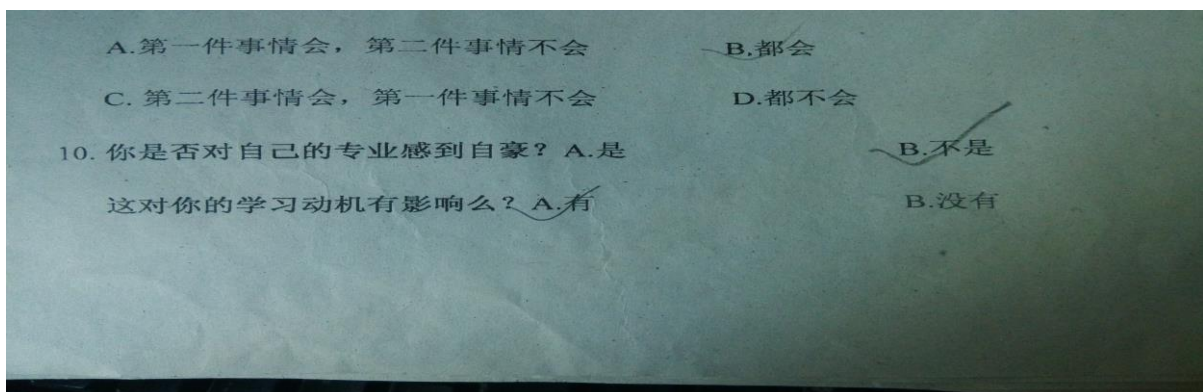 A.第一件事情会，第二件事情不会 B.都会
C. 第二件事情会，第一件事情不会 D.都不会
10. 你是否对自己的专业感到自豪？A.是 B.不是
这对你的学习动机有影响么？A.有 B.没有